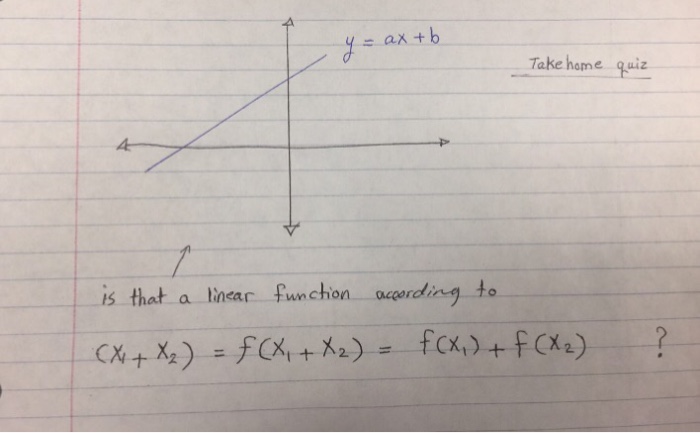 y = ax + b
Take home quiz
is that a linear function according to
(x₁ + x₂) = f(x₁ + x₂) = f(x₁) + f(x₂) ?